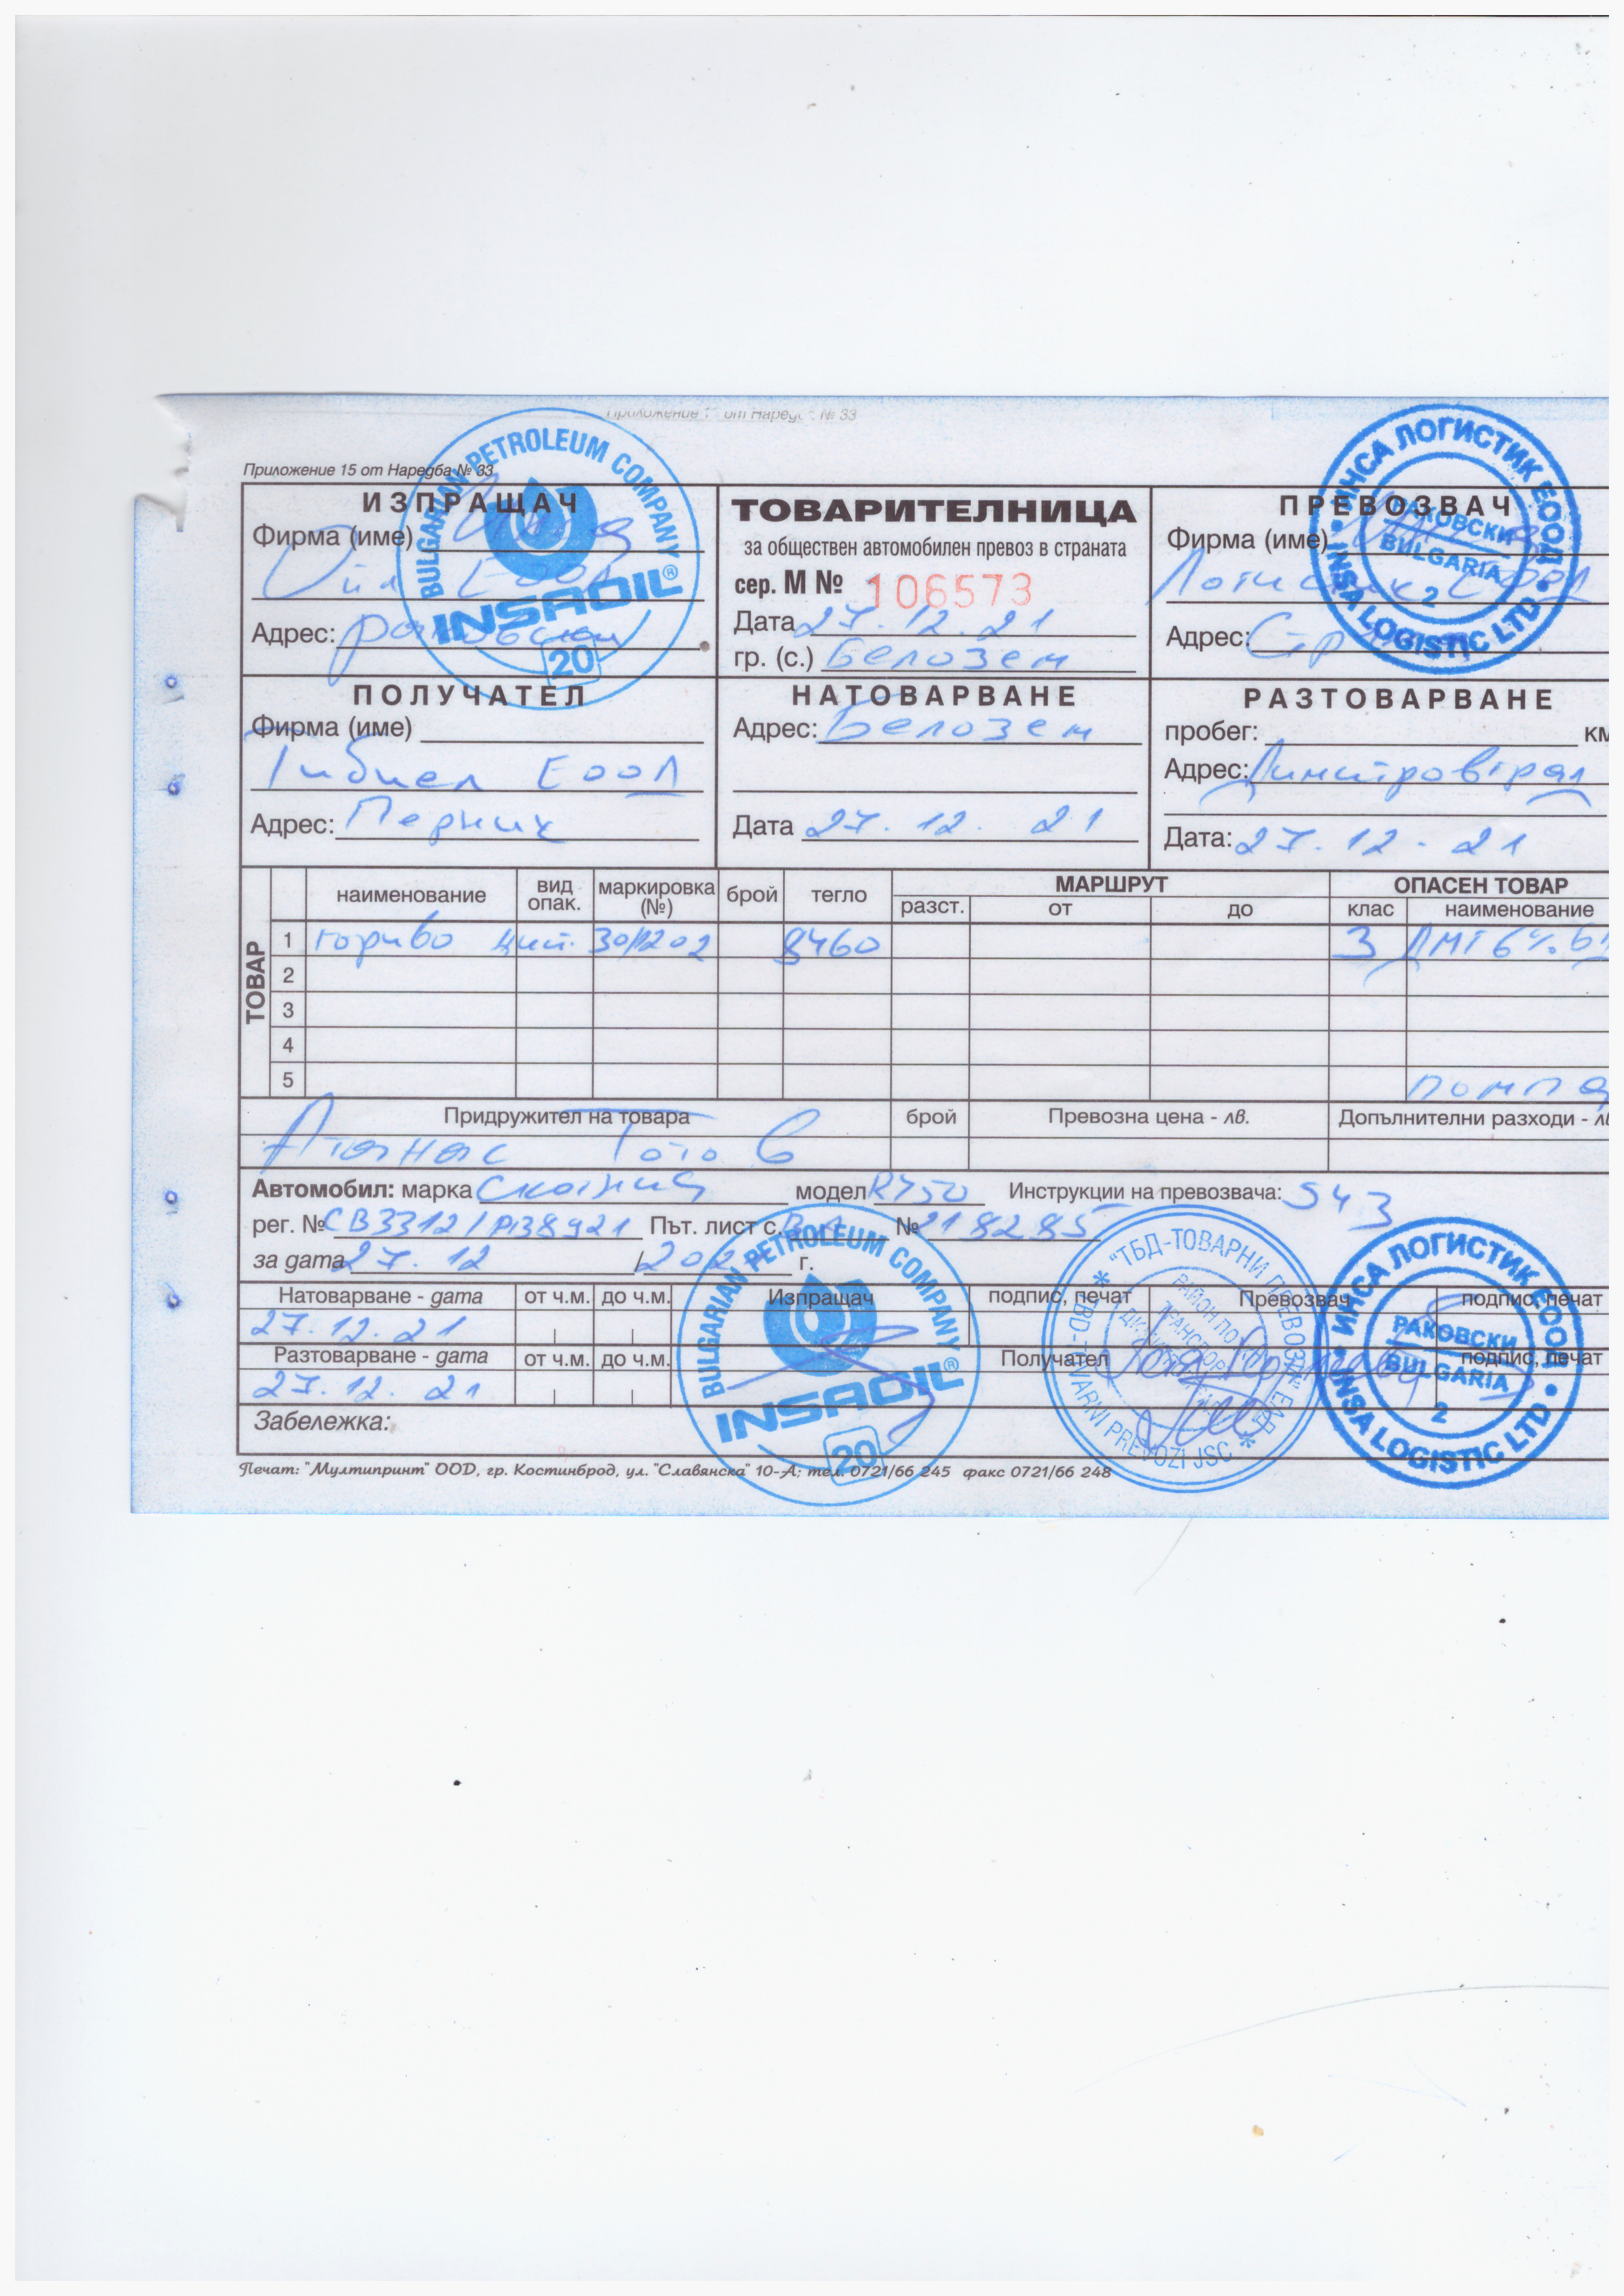 Приложение 15 от Наредба № 33
Приложение 15 от Наредба № 33
ИЗПРАЩАЧ
Фирма (име) Инса
Ойл ЕООД
Адрес: Раковски
BULGARIAN PETROLEUM COMPANY
INSAOIL®
20
ТОВАРИТЕЛНИЦА
за обществен автомобилен превоз в страната
сер. М № 106573
Дата 27.12.21
гр. (с.) Белозем
ПРЕВОЗВАЧ
Фирма (име) Инса
Логистик ЕООД
Адрес:
ИНСА ЛОГИСТИК ЕООД • INSA LOGISTIC LTD •
РАКОВСКИ
BULGARIA
2
ПОЛУЧАТЕЛ
Фирма (име)
Тибиел ЕООД
Адрес: Перник
НАТОВАРВАНЕ
Адрес: Белозем
Дата 27.12.21
РАЗТОВАРВАНЕ
пробег: км
Адрес: Димитровград
Дата: 27.12.21
ТОВАР
наименование вид опак. маркировка (№) брой тегло МАРШРУТ разст. от до ОПАСЕН ТОВАР клас наименование
1 гориво цист. 30/1202 8460 3 ДМГ 6%
2
3
4
5 помпа
Придружител на товара брой Превозна цена - лв. Допълнителни разходи - лв
Атанас Тотов
Автомобил: марка Скания модел R450 Инструкции на превозвача: S43
рег. № СВ3312/РВ8921 Път. лист с. № 218285
за дата 27.12 /2021 г.
Натоварване - дата от ч.м. до ч.м. Изпращач подпис, печат Превозвач подпис, печат
27.12.21
Разтоварване - дата от ч.м. до ч.м. Получател подпис, печат
27.12.21
Забележка:
BULGARIAN PETROLEUM COMPANY
INSAOIL®
20
* "ТБД-ТОВАРНИ ПРЕВОЗИ" ЕАД * TBD-TOVARNI PREVOZI JSC
ИНСА ЛОГИСТИК ЕООД • INSA LOGISTIC LTD •
РАКОВСКИ
BULGARIA
2
Печат: "Мултипринт" ООД, гр. Костинброд, ул. "Славянска" 10-А; тел. 0721/66 245 факс 0721/66 248